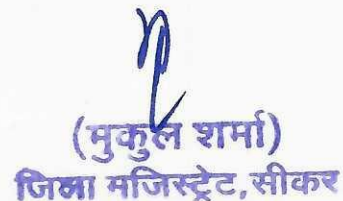 (मुकुल शर्मा)
जिला मजिस्ट्रेट,सीकर